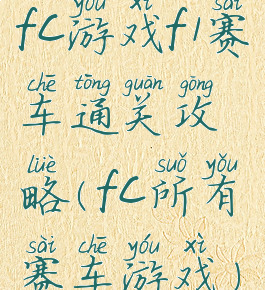 yóu xì sài
fc游戏f1赛
chē tōng guān gōng
车通关攻
lüè suǒ yǒu
略(fc所有
sài chē yóu xì
赛车游戏)